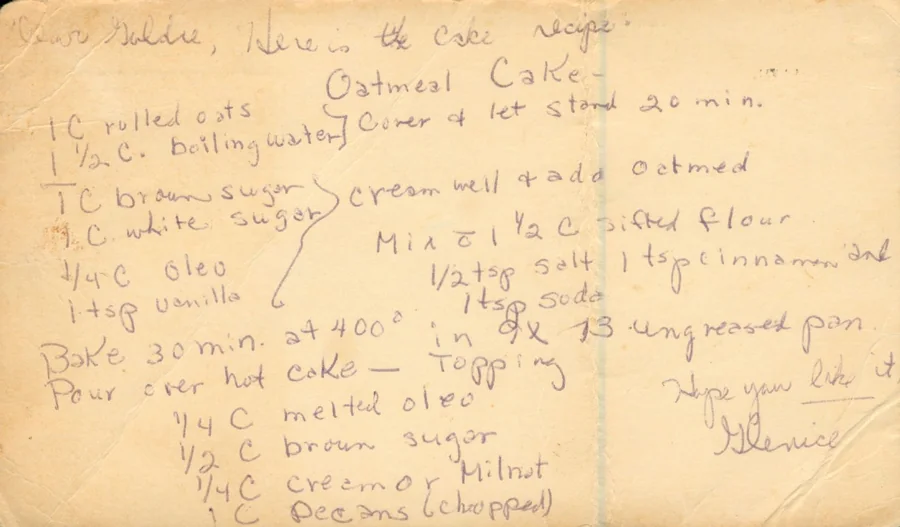 Dear Goldie, Here is the cake recipe:
Oatmeal Cake-
1 C rolled oats
1 1/2 C. boiling water } Cover & let stand 20 min.
1 C brown sugar
1 C. white sugar } cream well & add oatmed
1/4 C oleo
1 tsp vanilla
Mix c̄ 1 1/2 C sifted flour
1/2 tsp salt 1 tsp cinnamon and
1 tsp soda
Bake 30 min. at 400° in 9x13 ungreased pan.
Pour over hot cake — Topping
1/4 C melted oleo
1/2 C brown sugar
1/4 C cream or Milnot
1 C pecans (chopped)
Hope you like it,
Glenice